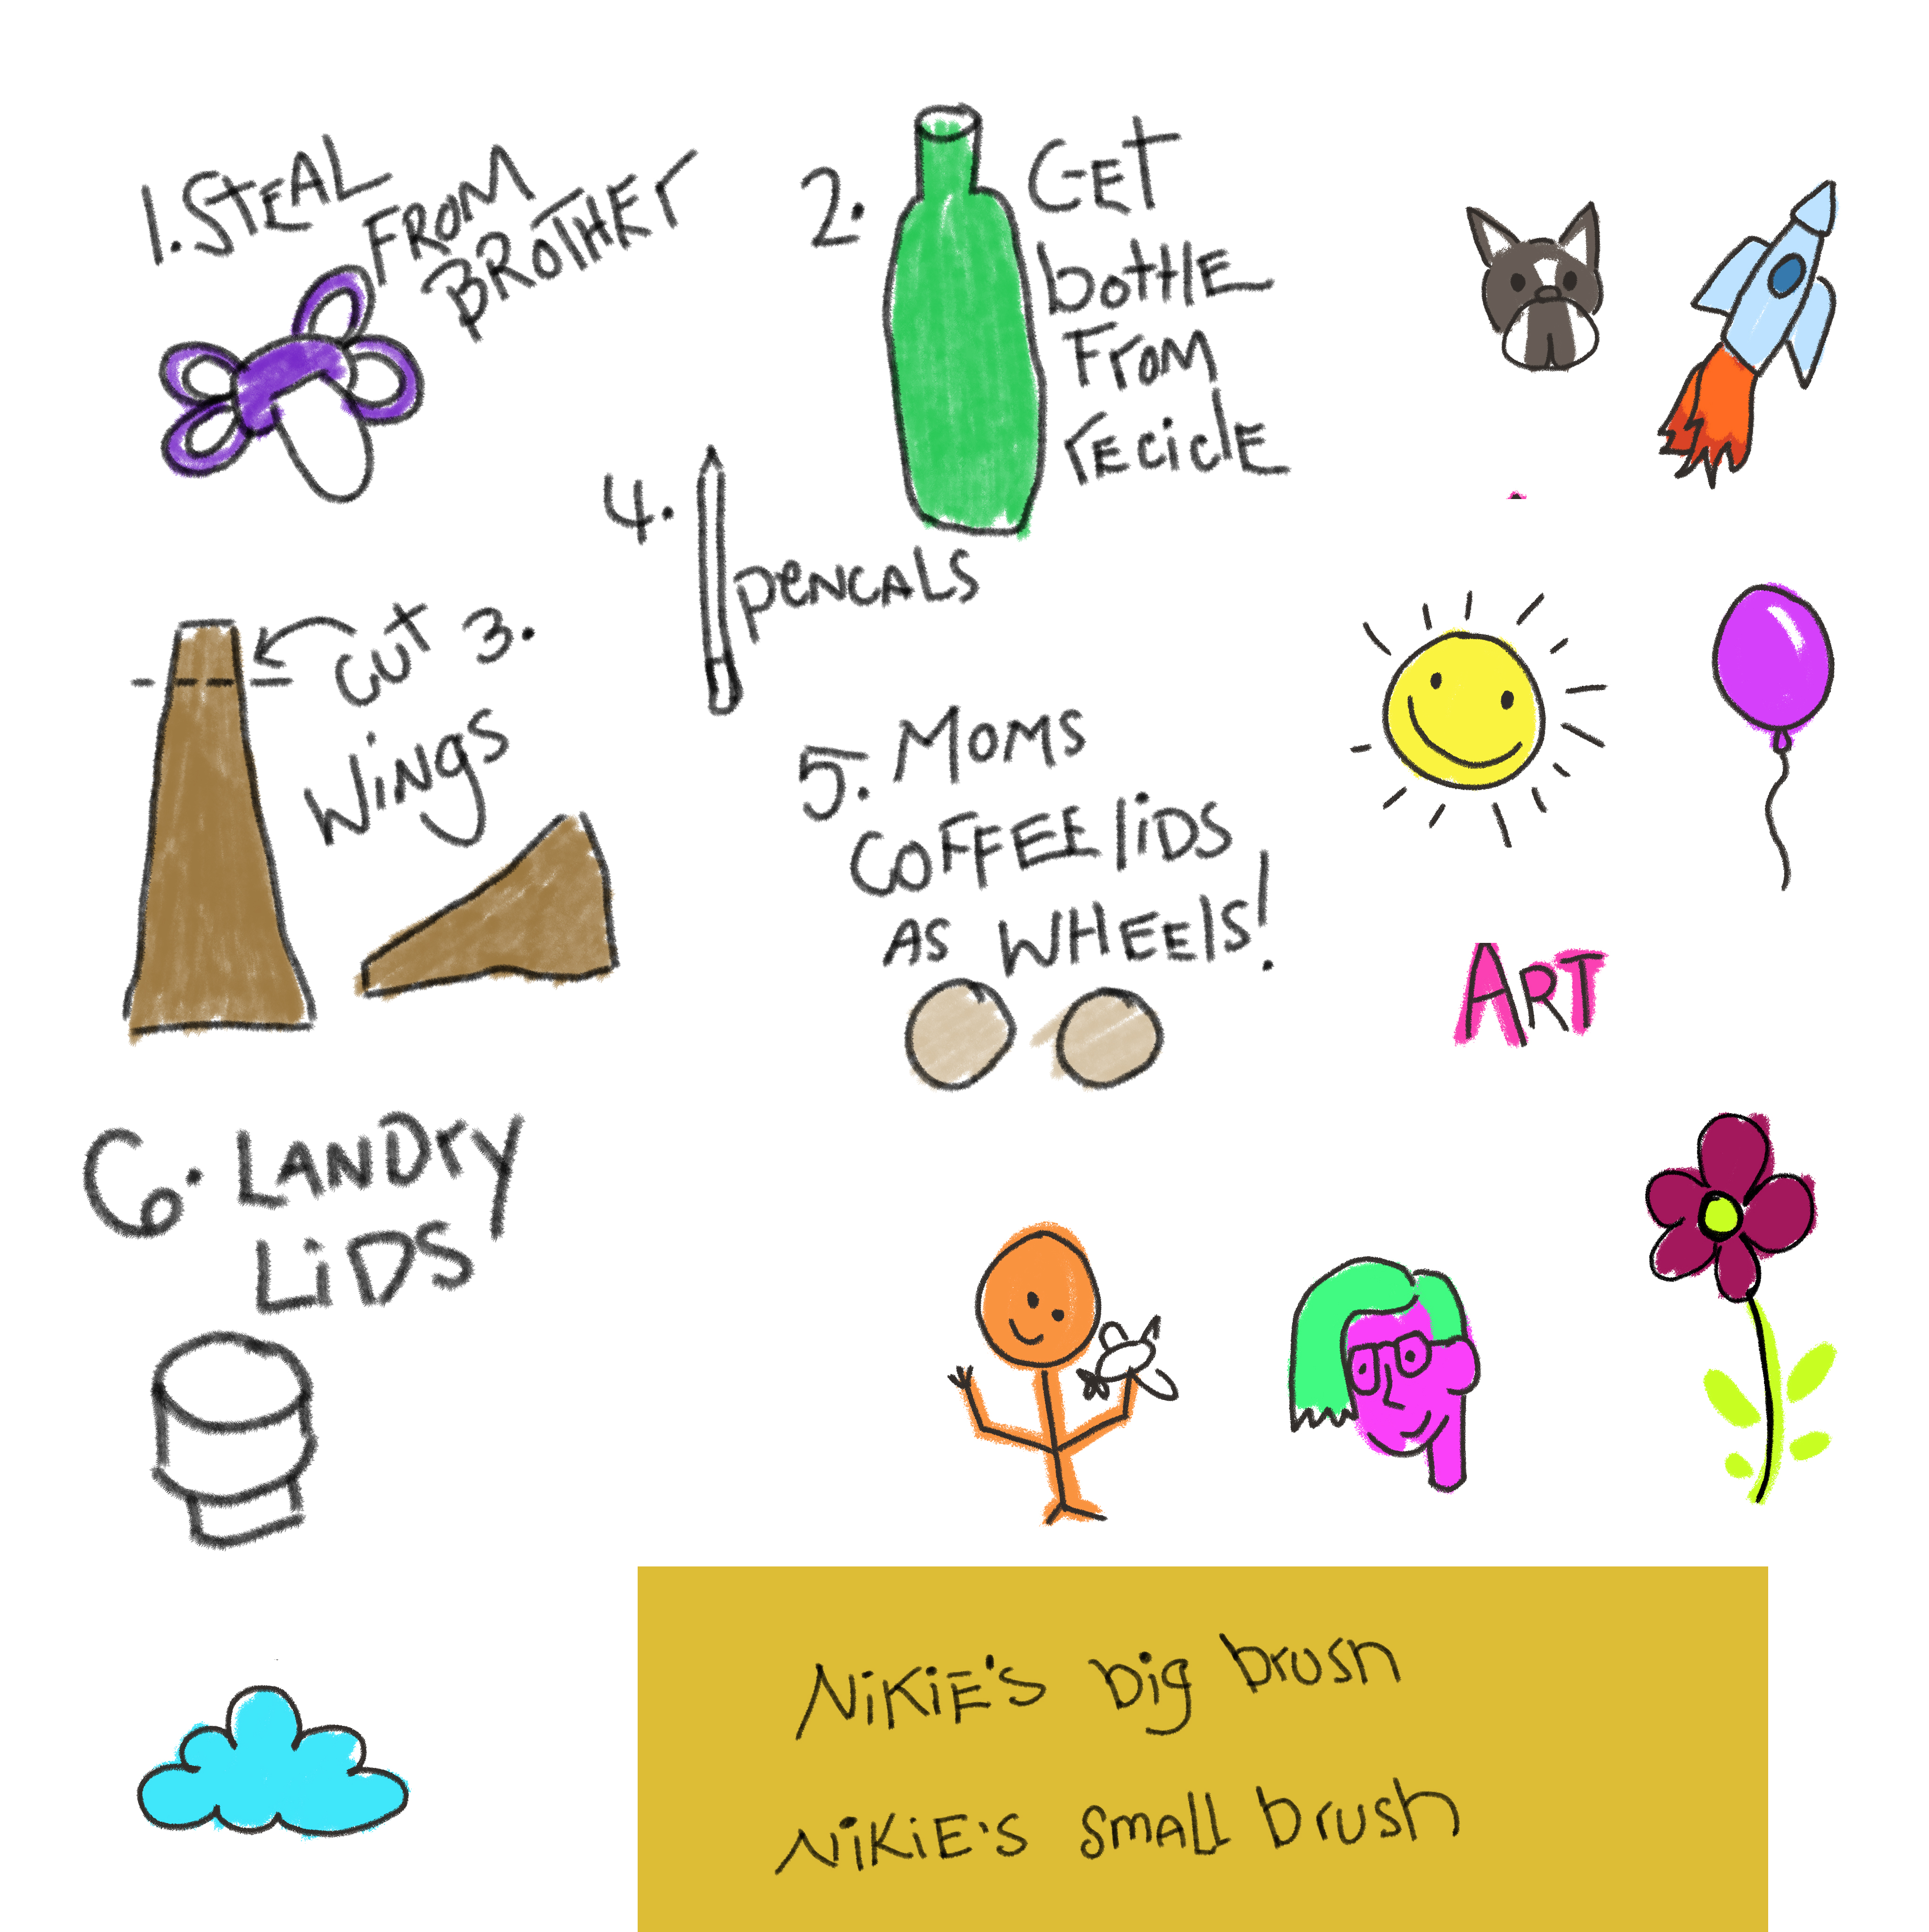 1. STEAL
FROM
BROTHEr
2. GET
bottlE
From
rEciclE
4.
PeNCALS
CUT 3.
WiNgS
5. MOMS
COFFEE liDS
AS WHEElS!
ART
6. LANDry
LiDS
NiKiE'S big brush
NiKiE'S SmAll brush